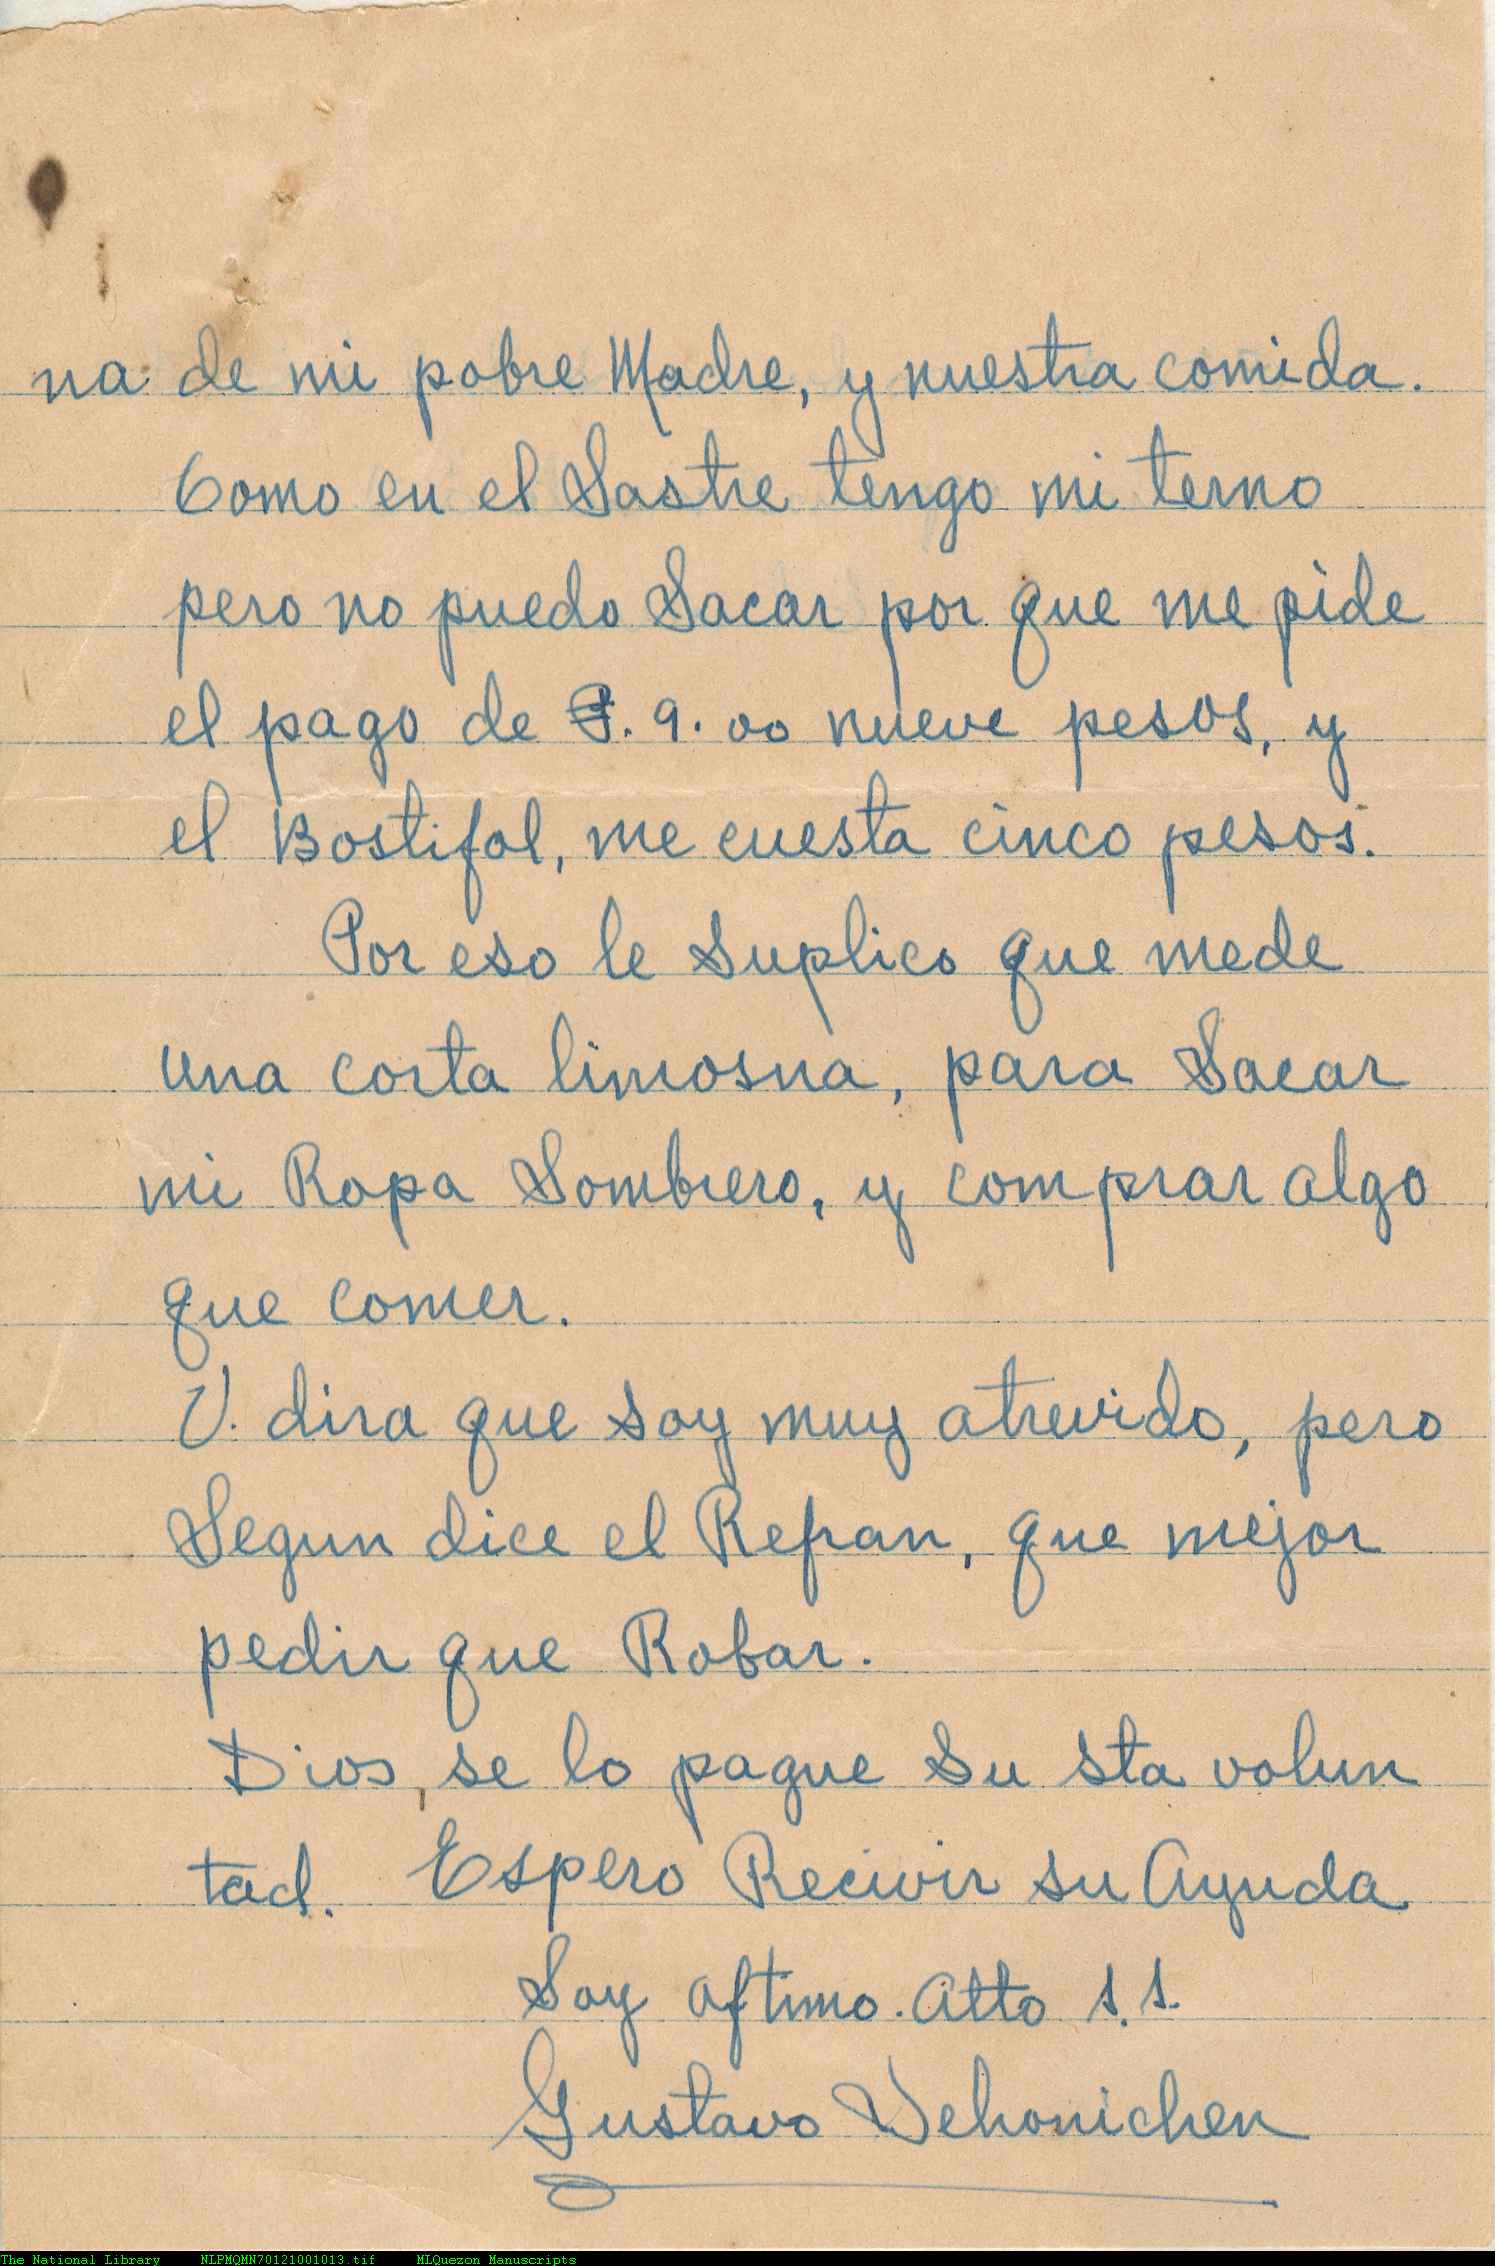 na de mi pobre Madre, y nuestra comida.
Como en el Sastre tengo mi terno
pero no puedo Sacar por que me pide
el pago de ₱. 9. 00 nueve pesos, y
el Bostifol, me cuesta cinco pesos.
Por eso le Suplico que mede
una corta limosna, para Sacar
mi Ropa Sombrero, y comprar algo
que comer.
V. dira que soy muy atrevido, pero
Segun dice el Refran, que mejor
pedir que Robar.
Dios, se lo pague Su sta volun
tad. Espero Recivir su Ayuda
Soy aftimo. Atto S. S.
Gustavo Vehonichen
The National Library NLPMQMN70121001013.tif MLQuezon Manuscripts